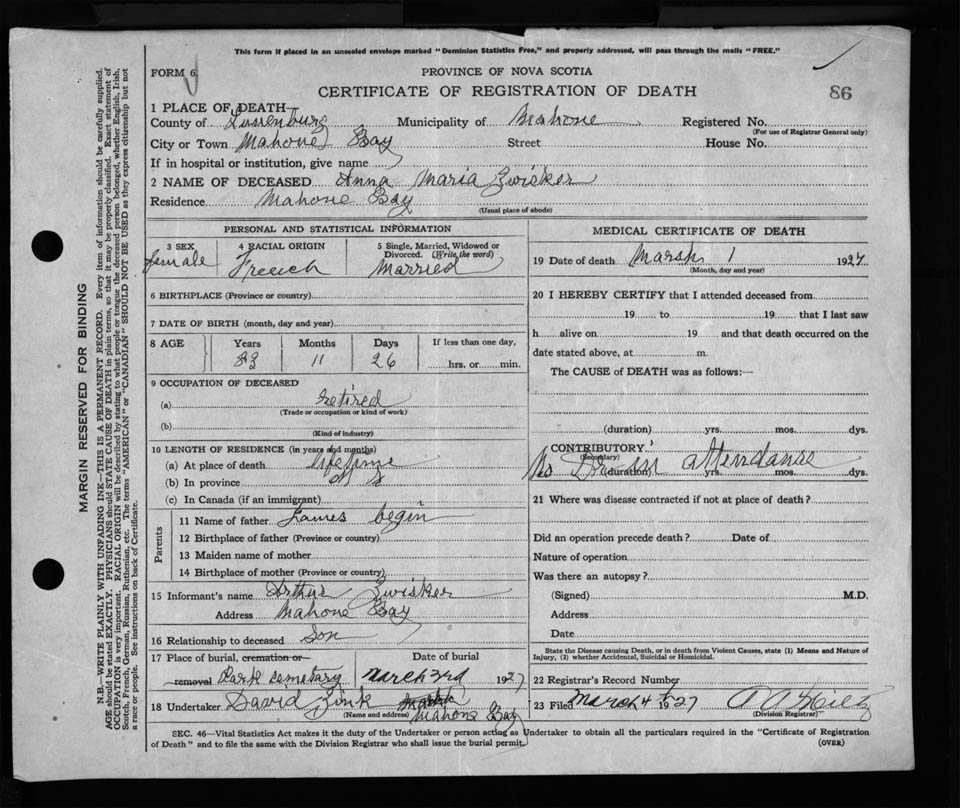 This form if placed in an unsealed envelope marked "Dominion Statistics Free," and properly addressed, will pass through the mails "FREE."
FORM 6
PROVINCE OF NOVA SCOTIA
CERTIFICATE OF REGISTRATION OF DEATH
86
1 PLACE OF DEATH
County of Lunenburg Municipality of Mahone Registered No.
(For use of Registrar General only)
City or Town Mahone Bay Street House No.
If in hospital or institution, give name
2 NAME OF DECEASED Anna Maria Zwisker
Residence Mahone Bay
(Usual place of abode)
PERSONAL AND STATISTICAL INFORMATION
3 SEX 4 RACIAL ORIGIN 5 Single, Married, Widowed or Divorced. (Write the word)
female Freech Married
6 BIRTHPLACE (Province or country)
7 DATE OF BIRTH (month, day and year)
8 AGE Years Months Days If less than one day,
83 11 26 hrs. or min.
9 OCCUPATION OF DECEASED
(a) retired
(Trade or occupation or kind of work)
(b)
(Kind of industry)
10 LENGTH OF RESIDENCE (in years and months)
(a) At place of death life time
(b) In province
(c) In Canada (if an immigrant)
Parents
11 Name of father James begin
12 Birthplace of father (Province or country)
13 Maiden name of mother
14 Birthplace of mother (Province or country)
15 Informant's name Arthur Zwisker
Address Mahone Bay
16 Relationship to deceased Son
17 Place of burial, cremation or removal Date of burial
Park Cemetary March 3rd 1927
18 Undertaker David Zink
(Name and address) Mahone Bay
MEDICAL CERTIFICATE OF DEATH
19 Date of death Marsh 1 1927
(Month, day and year)
20 I HEREBY CERTIFY that I attended deceased from
19 to 19 that I last saw
h alive on 19 and that death occurred on the
date stated above, at m.
The CAUSE of DEATH was as follows:—
(duration) yrs. mos. dys.
CONTRIBUTORY
(Secondary)
No attendanse
(duration) yrs. mos. dys.
21 Where was disease contracted if not at place of death?
Did an operation precede death? Date of
Nature of operation
Was there an autopsy?
(Signed) M.D.
Address
Date
State the Disease causing Death, or in death from Violent Causes, state (1) Means and Nature of Injury, (2) whether Accidental, Suicidal or Homicidal.
22 Registrar's Record Number
23 Filed March 4th 1927
(Division Registrar)
SEC. 46—Vital Statistics Act makes it the duty of the Undertaker or person acting as Undertaker to obtain all the particulars required in the "Certificate of Registration
of Death" and to file the same with the Division Registrar who shall issue the burial permit.
(OVER)
MARGIN RESERVED FOR BINDING
N.B.—WRITE PLAINLY WITH UNFADING INK—THIS IS A PERMANENT RECORD. Every item of information should be carefully supplied.
AGE should be stated EXACTLY. PHYSICIANS should STATE CAUSE OF DEATH in plain terms, so that it may be properly classified. Exact statement of
OCCUPATION is very important. RACIAL ORIGIN will be described by stating to what people or tongue the deceased person belonged, whether English, Irish,
Scotch, French, German, Russian, Ruthenian, etc. The terms "AMERICAN" or "CANADIAN" SHOULD NOT BE USED as they express citizenship but not
a race or people. See instructions on back of Certificate.